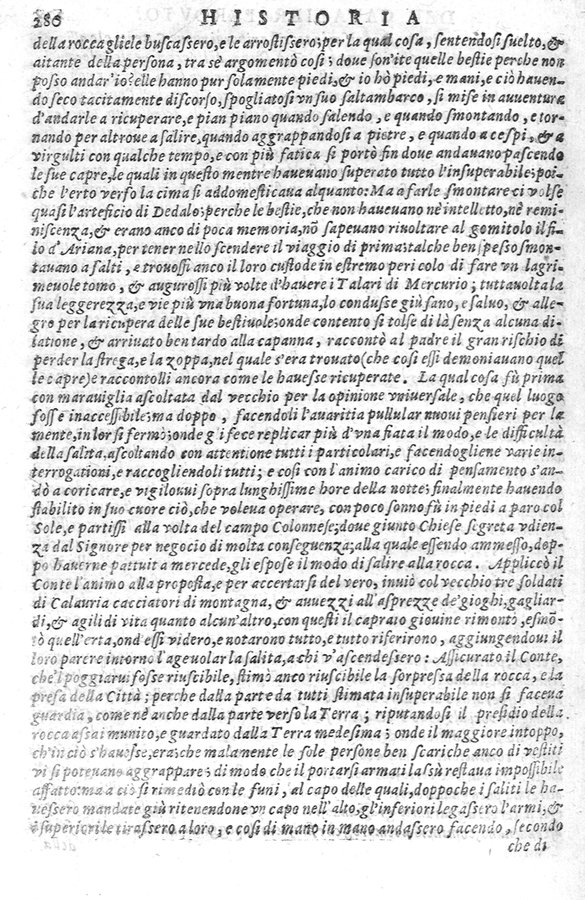 286 HISTORIA
della rocca gliele buscassero, e le arrostissero; per la qual cosa, sentendosi suelto, &
aitante della persona, tra sè argomentò così; doue son'ite quelle bestie perche non
posso andar'io? elle hanno pur solamente piedi, & io hò piedi, e mani, e ciò hauen-
do seco tacitamente discorso, spogliatosi vn suo saltambarco, si mise in auuentura
d'andarle a ricuperare, e pian piano quando salendo, e quando smontando, e tor-
nando per altroue a salire, quando aggrappandosi a pietre, e quando a cespi, & a
virgulti con qualche tempo, e con più fatica si portò fin doue andauano pascendo
le sue capre, le quali in questo mentre haueuano superato tutto l'insuperabile; poi-
che l'erto verso la cima si addomesticaua alquanto: Ma a farle smontare ci volse
quasi l'arteficio di Dedalo; perche le bestie, che non haueuano nè intelletto, nè remi-
niscenza, & erano anco di poca memoria, nō sapeuano riuoltare al gomitolo il fi-
lo d'Ariana, per tener nello scendere il viaggio di prima: talche ben spesso smon-
tauano a salti, e trouossi anco il loro custode in estremo pericolo di fare vn lagri-
meuole tomo, & augurossi più volte d'hauere i Talari di Mercurio; tuttauolta la
sua leggerezza, e vie più vna buona fortuna, lo condusse giù sano, e saluo, & alle-
gro per la ricupera delle sue bestiuole: onde contento si tolse di là senza alcuna di-
latione, & arriuato ben tardo alla capanna, raccontò al padre il gran rischio di
perder la strega, e la zoppa, nel quale s'era trouato (che così essi demoniauano quel
le capre) e raccontolli ancora come le hauesse ricuperate. La qual cosa fù prima
con marauiglia ascoltata dal vecchio per la opinione vniuersale, che quel luogo
fosse inaccessibile; ma doppo, facendoli l'auaritia pullular nuoui pensieri per la
mente, in lor si fermò; onde gli fece replicar più d'vna fiata il modo, e le difficultà
della salita, ascoltando con attentione tutti i particolari, e facendogliene varie in-
terrogationi, e raccogliendoli tutti; e così con l'animo carico di pensamento s'an-
dò a coricare, e vigilouui sopra lunghissime hore della notte: finalmente hauendo
stabilito in suo cuore ciò, che voleua operare, con poco sonno fù in piedi a paro col
Sole, e partissi alla volta del campo Colonnese; doue giunto Chiese segreta vdien-
za dal Signore per negocio di molta conseguenza; alla quale essendo ammesso, dop-
po hauerne pattuita mercede, gli espose il modo di salire alla rocca. Applicò il
Conte l'animo alla proposta, e per accertarsi del vero, inuiò col vecchio tre soldati
di Calauria cacciatori di montagna, & auuezzi all'asprezze de' gioghi, gagliar-
di, & agili di vita quanto alcun'altro, con questi il capraio giouine rimontò, e smō-
tò quell'erta, ond'essi videro, e notarono tutto, e tutto riferirono, aggiungendoui il
loro parere intorno l'ageuolar la salita, a chi v'ascendessero: Assicurato il Conte,
che'l poggiarui fosse riuscibile, stimò anco riuscibile la sorpressa della rocca, e la
presa della Città; perche dalla parte da tutti stimata insuperabile non si faceua
guardia, come nè anche dalla parte verso la Terra; riputandosi il presidio della
rocca assai munito, e guardato dalla Terra medesima; onde il maggiore intoppo,
ch'in ciò s'hauesse, era; che malamente le sole persone ben scariche anco di vestiti
vi si poteuano aggrappare; di modo che il portarsi armati lassù restaua impossibile
affatto: ma a ciò si rimediò con le funi, al capo delle quali, doppoche i saliti le ha-
uessero mandate giù ritenendone vn capo nell'alto, gl'inferiori legassero l'armi, &
i superiori le tirassero a loro, e così di mano in mano andassero facendo, secondo
che di